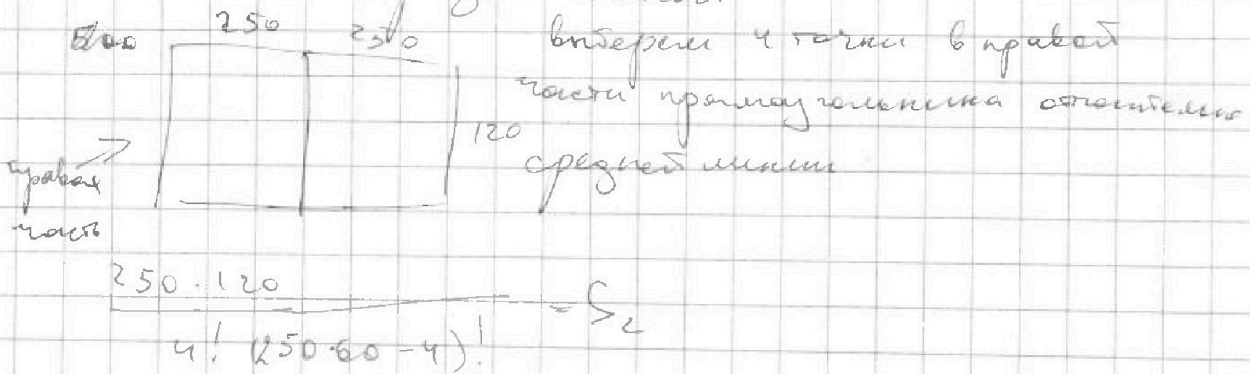 500 250 250
выберем 4 точки в правой
части прямоугольника относительно
120
средней линии
правая
часть
250·120
4! (250·60-4)! = S₂